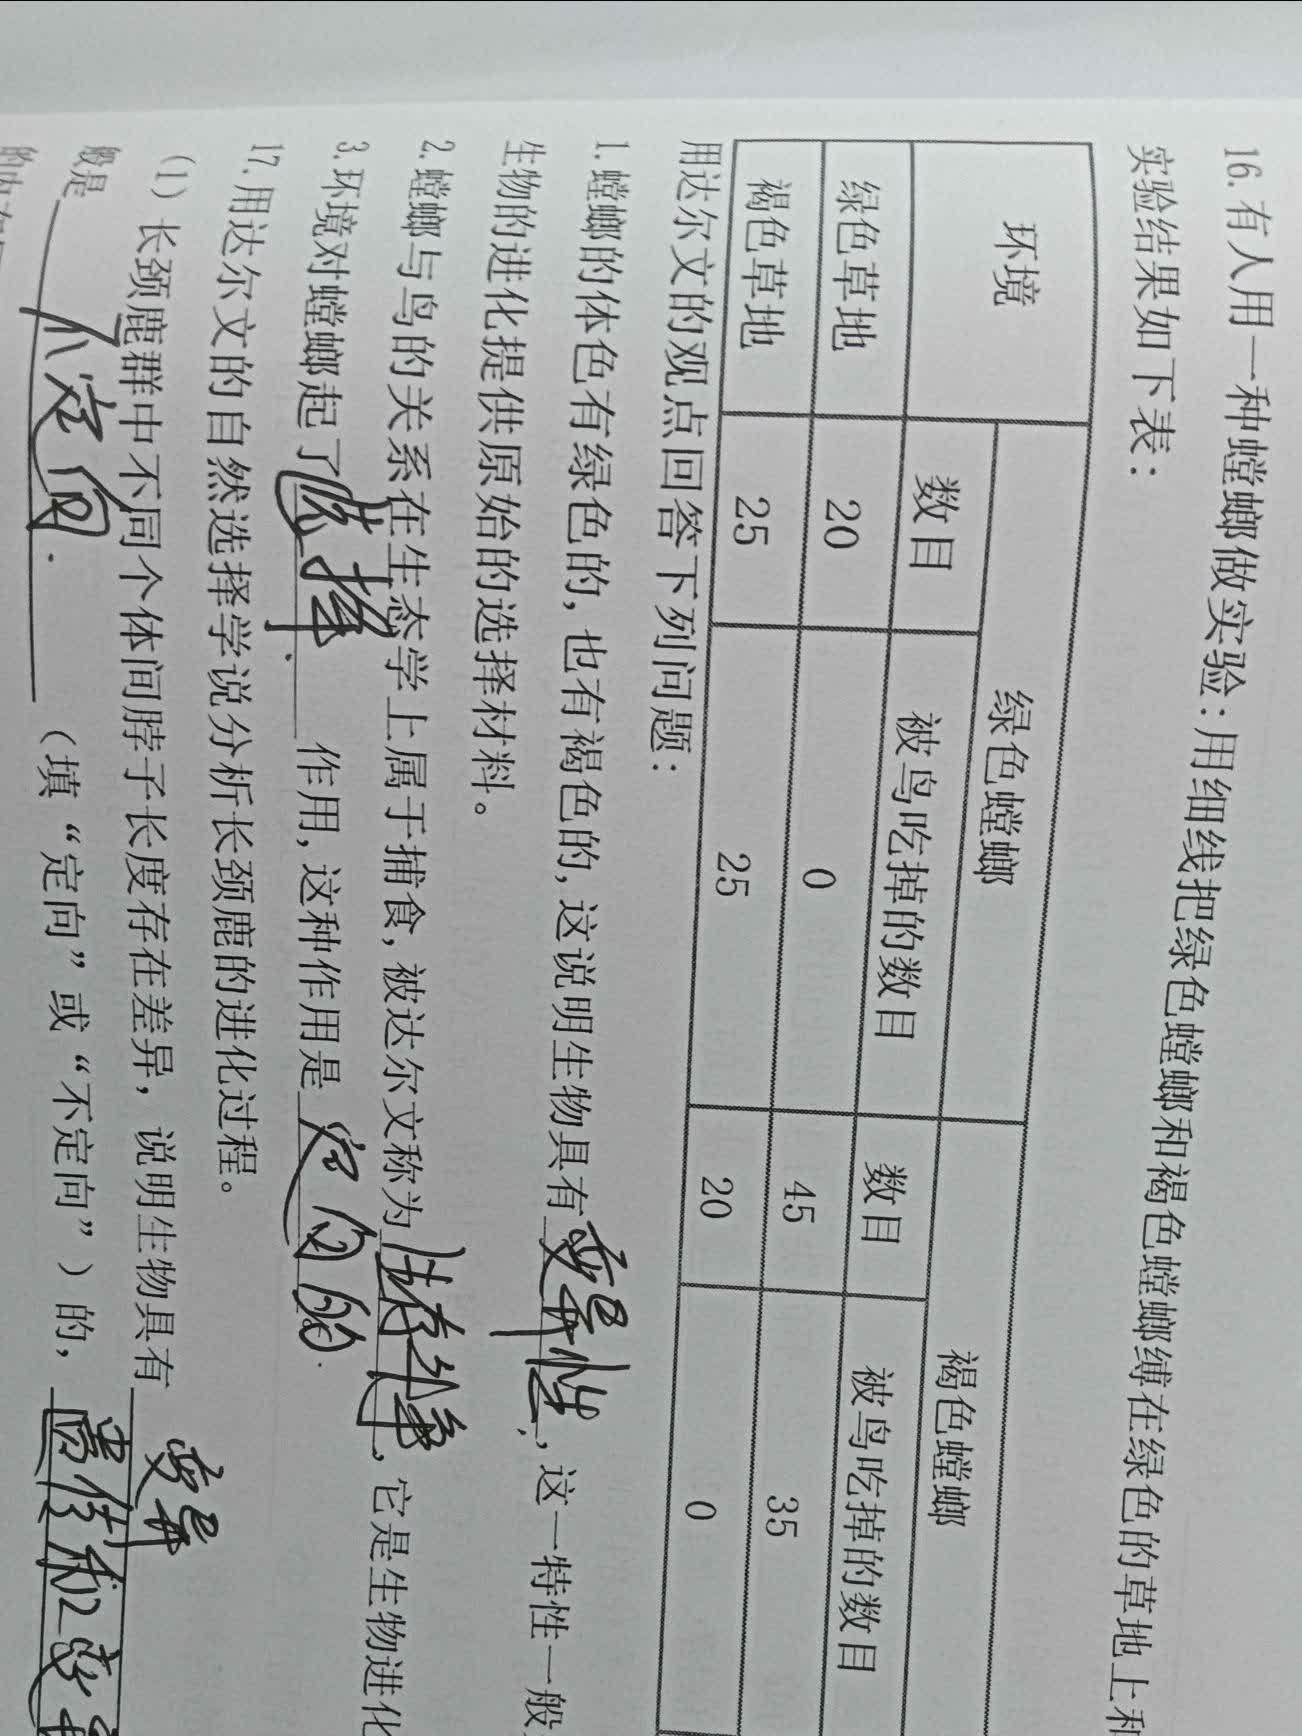 16.有人用一种螳螂做实验:用细线把绿色螳螂和褐色螳螂缚在绿色的草地上和
实验结果如下表:
环境 绿色螳螂 褐色螳螂
数目 被鸟吃掉的数目 数目 被鸟吃掉的数目
绿色草地 20 0 45 35
褐色草地 25 25 20 0
用达尔文的观点回答下列问题:
1.螳螂的体色有绿色的,也有褐色的,这说明生物具有变异性,这一特性一般
生物的进化提供原始的选择材料。
2.螳螂与鸟的关系在生态学上属于捕食,被达尔文称为生存斗争,它是生物进化
3.环境对螳螂起了选择作用,这种作用是定向的.
17.用达尔文的自然选择学说分析长颈鹿的进化过程。
(1)长颈鹿群中不同个体间脖子长度存在差异,说明生物具有变异
般是不定向.(填“定向”或“不定向”)的,遗传和变异